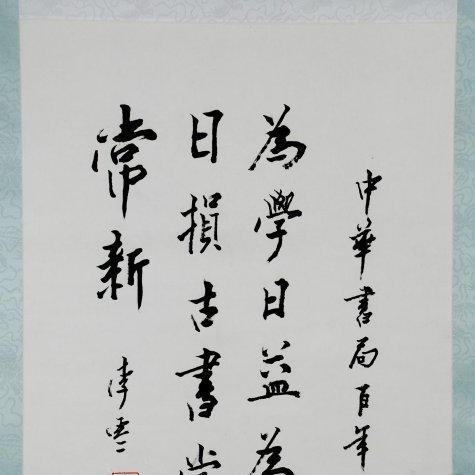 中華書局百年
為學日益為
日損古書常
常新
李零